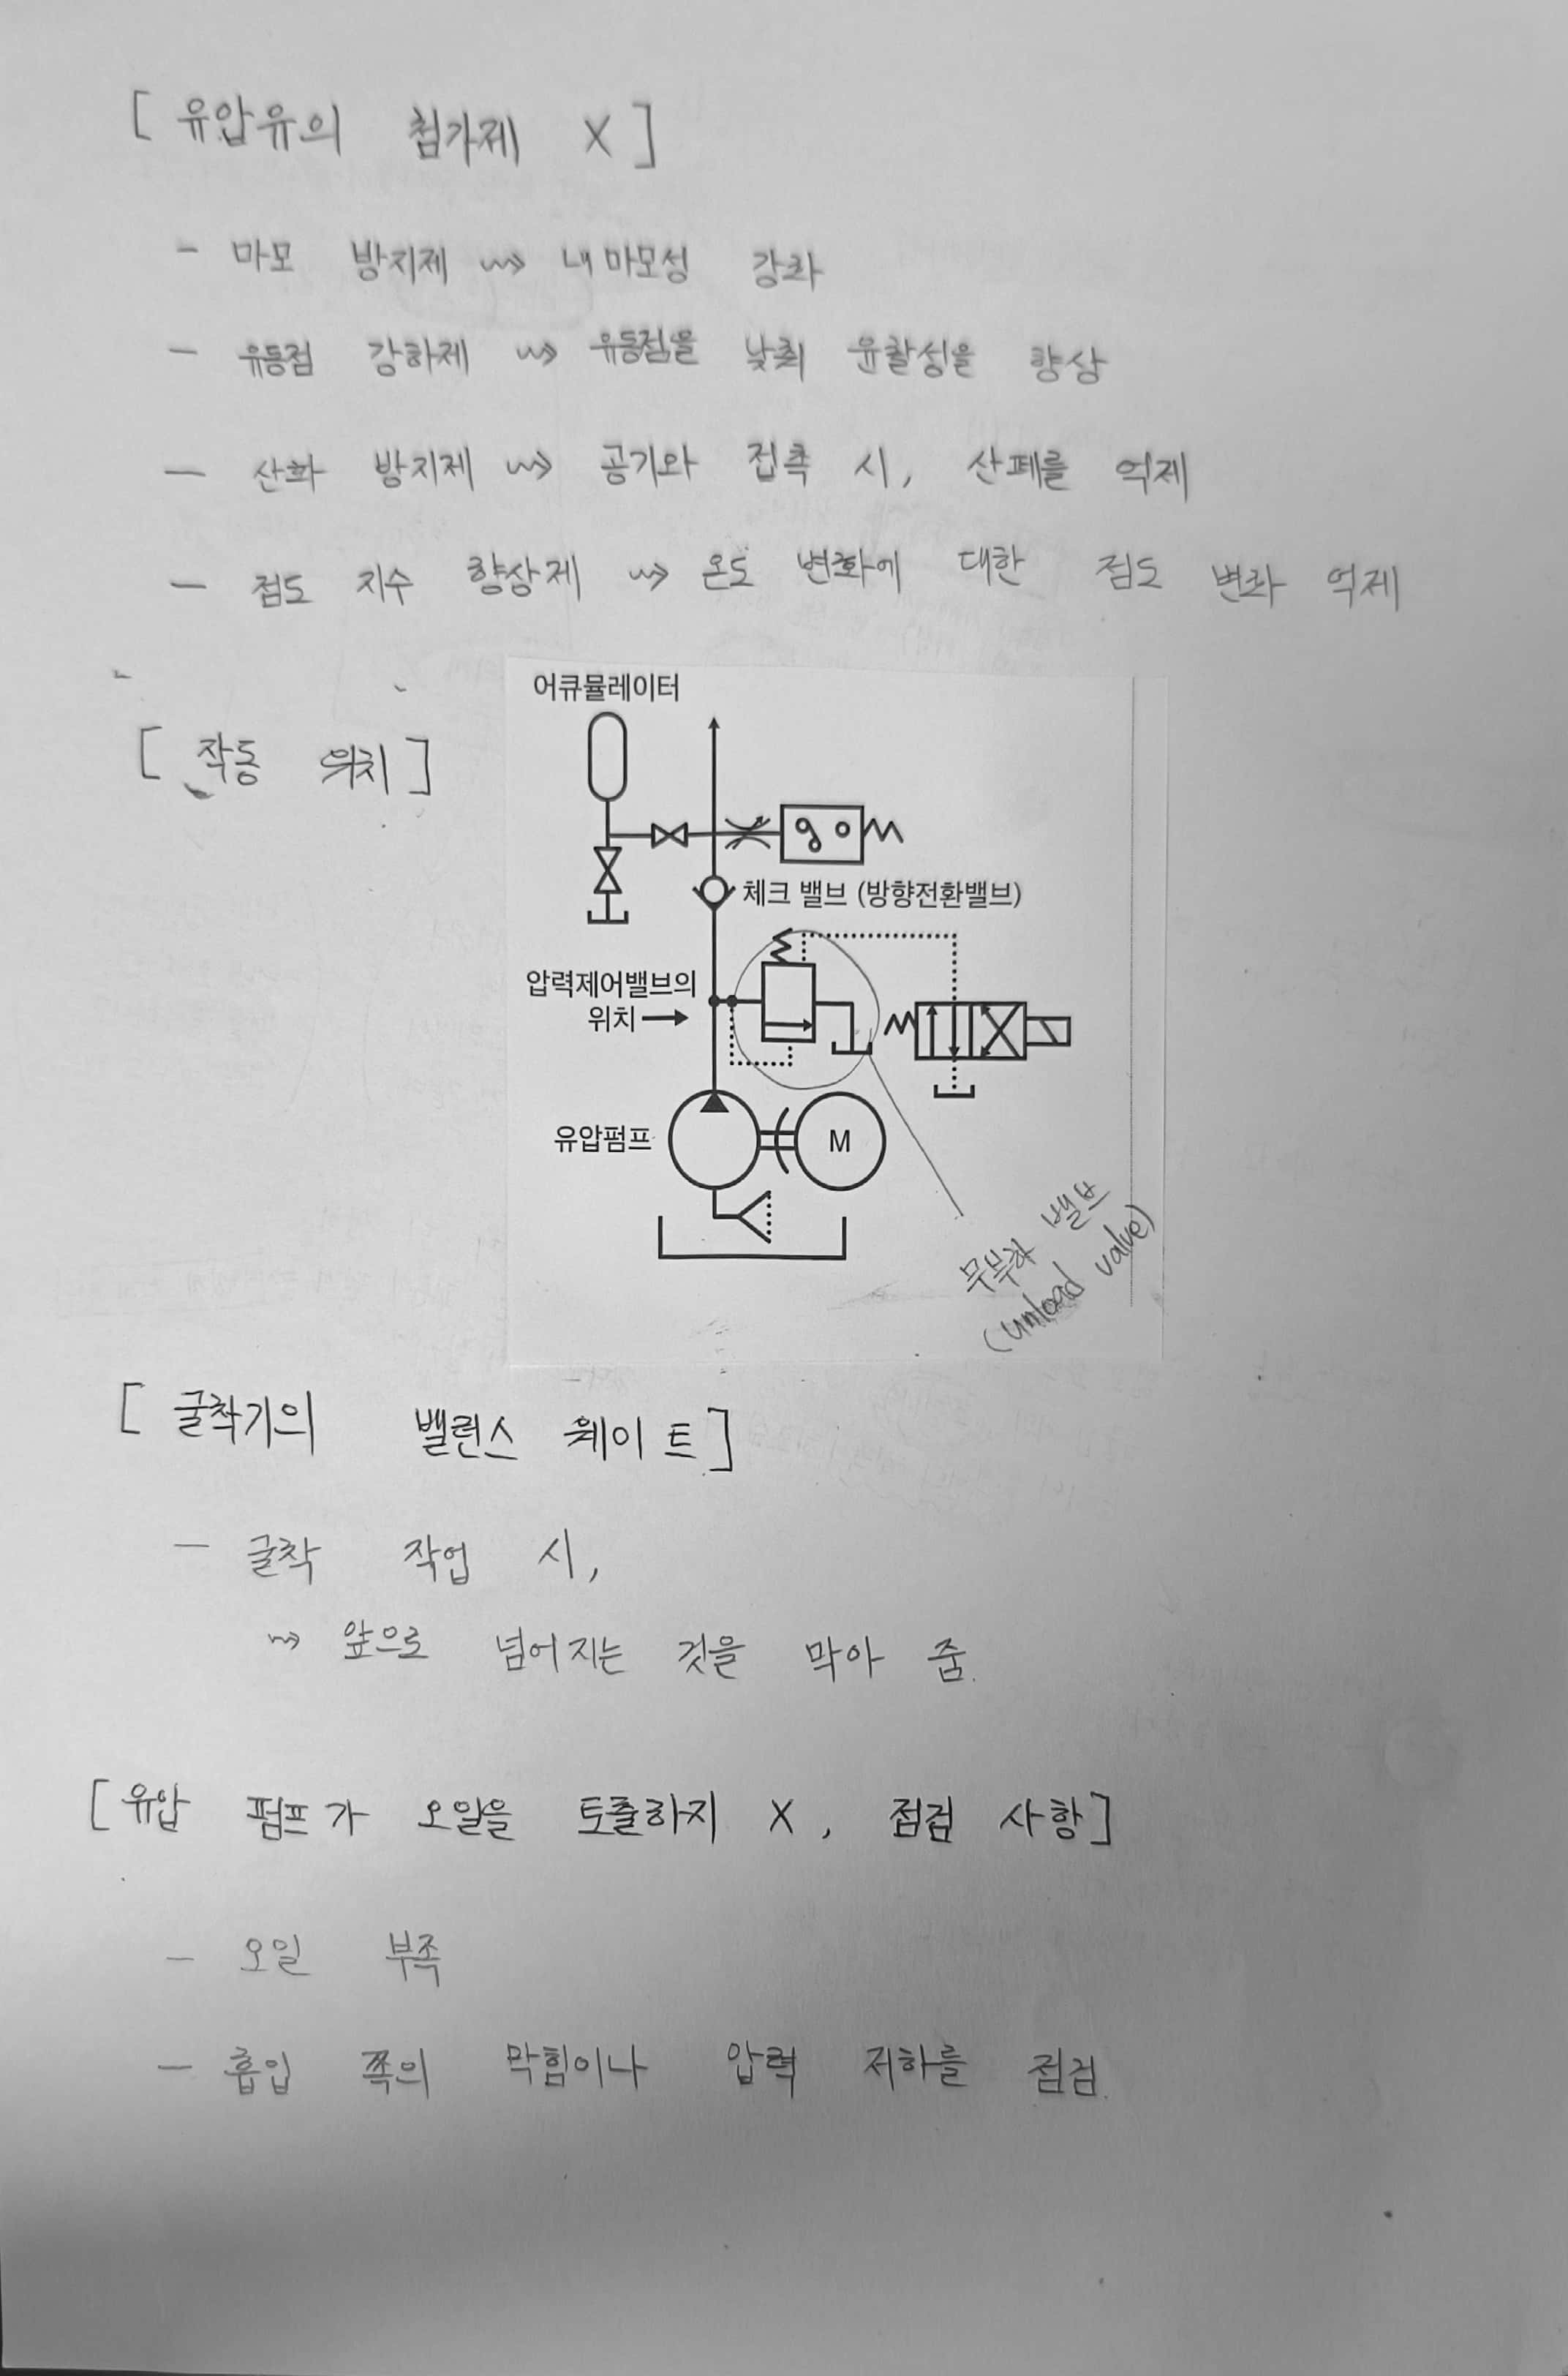 [ 유압유의 첨가제 X ]
- 마모 방지제 ⇝ 내마모성 강화
- 유동점 강하제 ⇝ 유동점을 낮춰 윤활성을 향상
- 산화 방지제 ⇝ 공기와 접촉 시, 산폐를 억제
- 점도 지수 향상제 ⇝ 온도 변화에 대한 점도 변화 억제
[ 작동 위치 ]
어큐뮬레이터
체크 밸브 (방향전환밸브)
압력제어밸브의
위치 →
유압펌프
M
무부하 밸브
(unload valve)
[ 굴착기의 밸런스 웨이트 ]
- 굴착 작업 시,
⇝ 앞으로 넘어지는 것을 막아 줌.
[ 유압 펌프가 오일을 토출하지 X, 점검 사항 ]
- 오일 부족
- 흡입 쪽의 막힘이나 압력 저하를 점검.